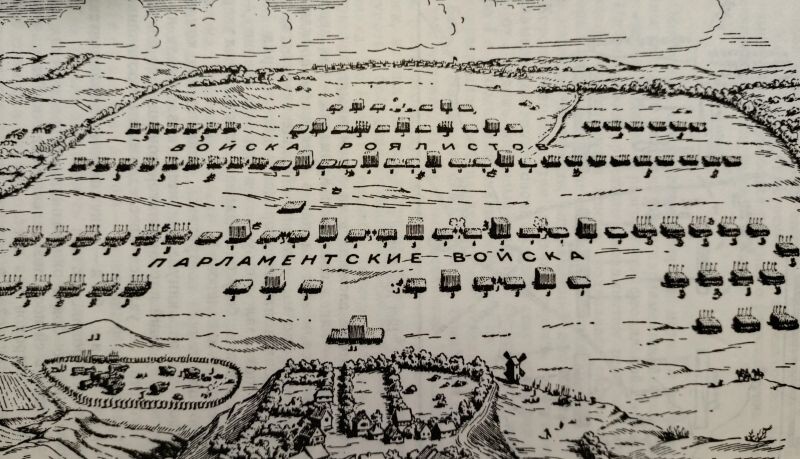 ВОЙСКА РОЯЛИСТОВ
ПАРЛАМЕНТСКИЕ ВОЙСКА